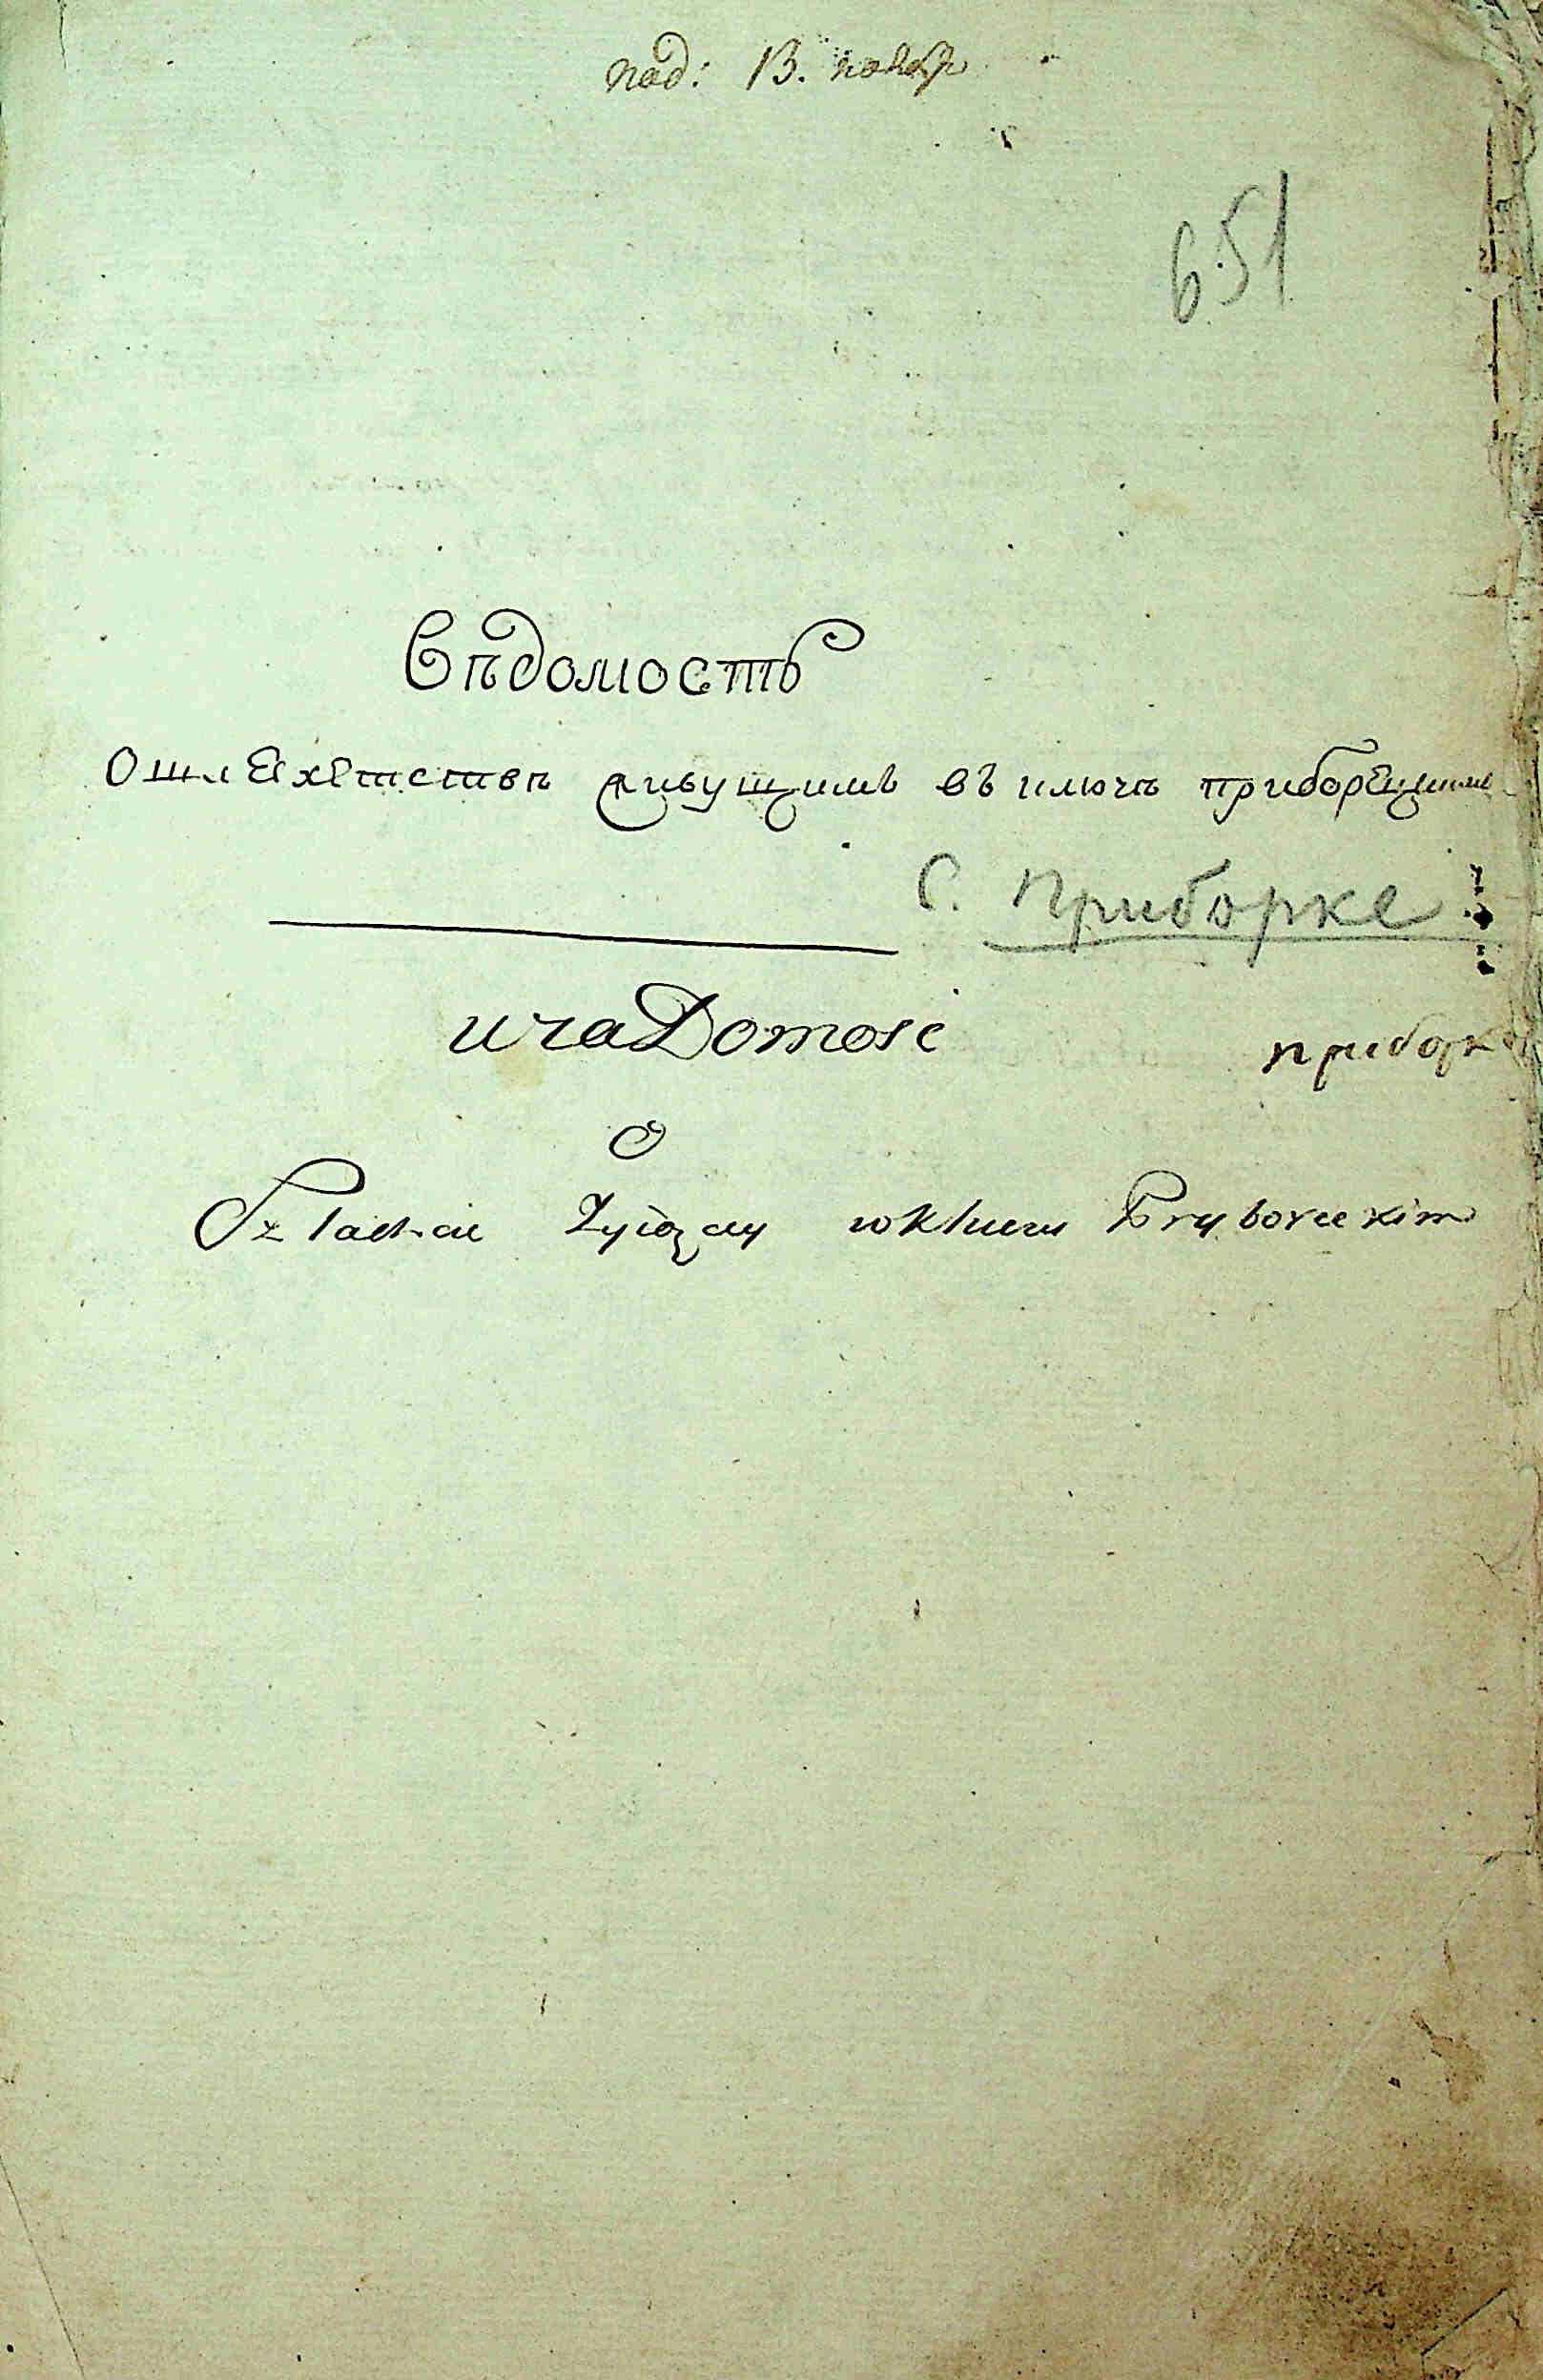 под: 13. ноябр
651
Вѣдомость
О шляхетствѣ живущимъ въ ключѣ приборецкимъ
С. Приборке
wiaDomosc
приборк
O
Szlachcie Zyiącey w kluczu Pryboreckim